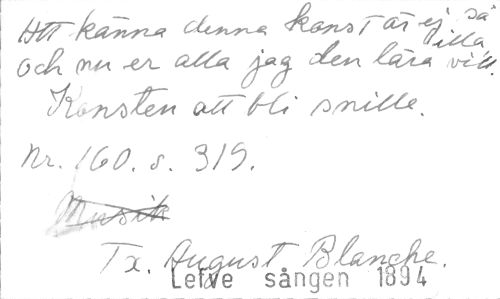 Att känna denna konst är ej så illa
och nu er alla jag den lära vill.
Konsten att bli snille.
Nr. 160. s. 319.
Musik
Tx. August Blanche.
Lefve sången 1894